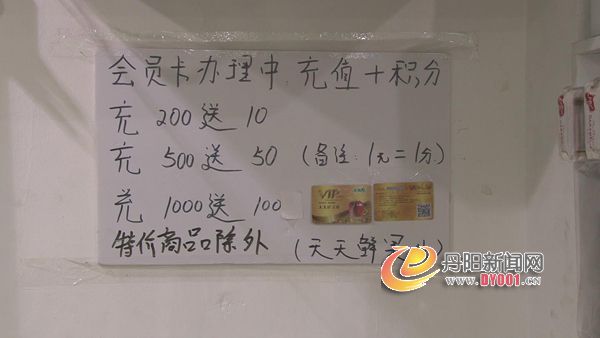 会员卡办理中.充值+积分
充 200送 10
充 500送 50 (备注:1元=1分)
充 1000送 100
VIP
特价商品除外 (天天鲜
丹阳新闻网
WWW.DY001.CN